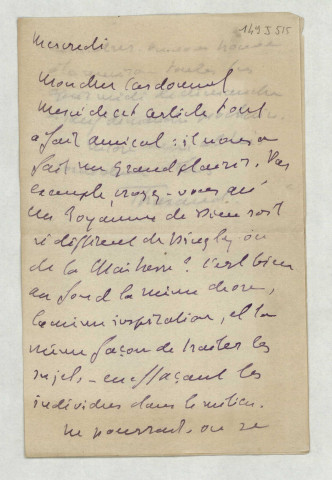 149 J 515
Mercredi
Mon cher Cardonnel
Merci de cet article tout
à fait amical : il nous a
fait un grand plaisir. Par
exemple, croyez-vous que
les Royaumes de Dieu soit
si différent de Bingley ou
de la Maîtresse ? C'est bien
au fond la même chose,
la même inspiration, et la
même façon de traiter les
sujets, en effaçant les
individus dans le milieu.
Ne pourrait-on se